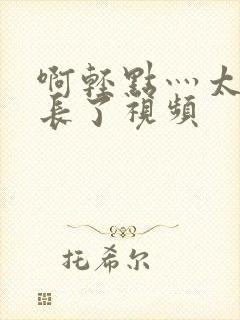 啊輕點灬太
長了視頻
托希尔